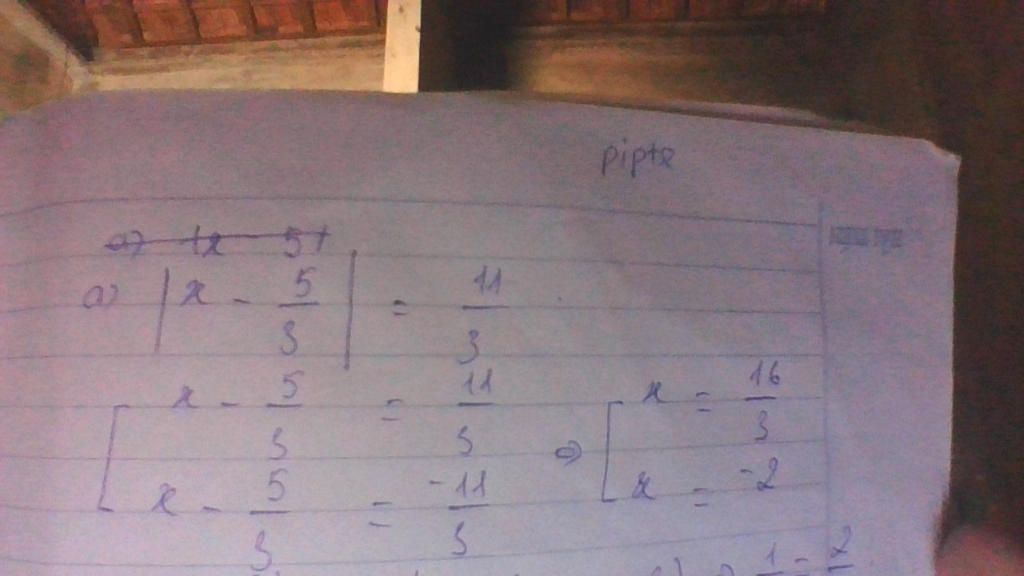 pipte
a) |x 5|
a) |x - 5/3| = 11/3
[ x - 5/3 = 11/3 => [ x = 16/3
x - 5/3 = -11/3 x = -2
1 = 2